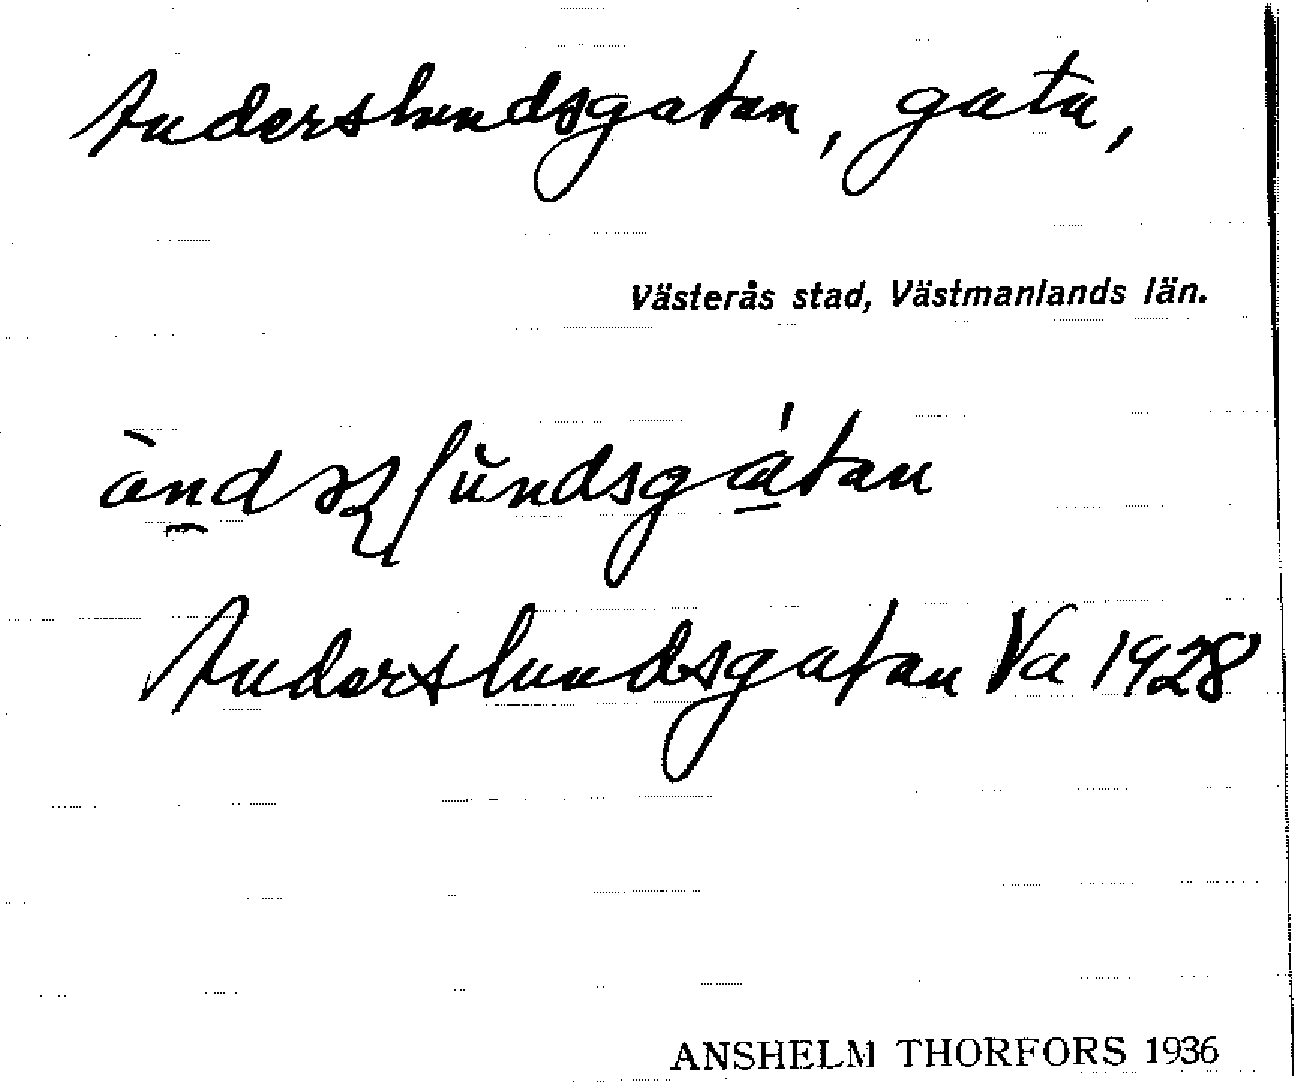 Anderslundsgatan, gata,
Västerås stad, Västmanlands län.
Anderslundsgatan Va 1928
ANSHELM THORFORS 1936